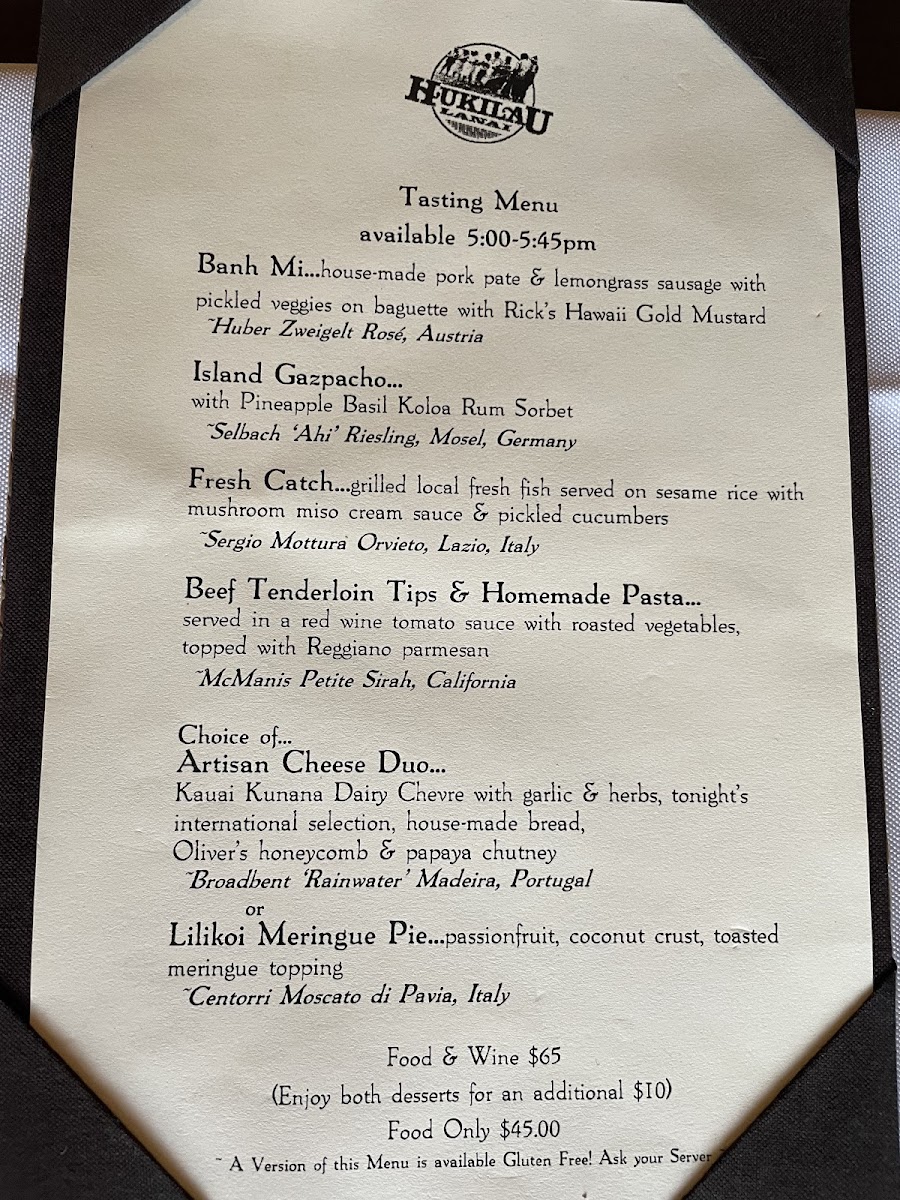 HUKILAU
LANAI
Tasting Menu
available 5:00-5:45pm
Banh Mi...house-made pork pate & lemongrass sausage with
pickled veggies on baguette with Rick's Hawaii Gold Mustard
~Huber Zweigelt Rosé, Austria
Island Gazpacho...
with Pineapple Basil Koloa Rum Sorbet
~Selbach 'Ahi' Riesling, Mosel, Germany
Fresh Catch...grilled local fresh fish served on sesame rice with
mushroom miso cream sauce & pickled cucumbers
~Sergio Mottura Orvieto, Lazio, Italy
Beef Tenderloin Tips & Homemade Pasta...
served in a red wine tomato sauce with roasted vegetables,
topped with Reggiano parmesan
~McManis Petite Sirah, California
Choice of...
Artisan Cheese Duo...
Kauai Kunana Dairy Chevre with garlic & herbs, tonight's
international selection, house-made bread,
Oliver's honeycomb & papaya chutney
~Broadbent 'Rainwater' Madeira, Portugal
or
Lilikoi Meringue Pie...passionfruit, coconut crust, toasted
meringue topping
~Centorri Moscato di Pavia, Italy
Food & Wine $65
(Enjoy both desserts for an additional $10)
Food Only $45.00
~ A Version of this Menu is available Gluten Free! Ask your Server ~